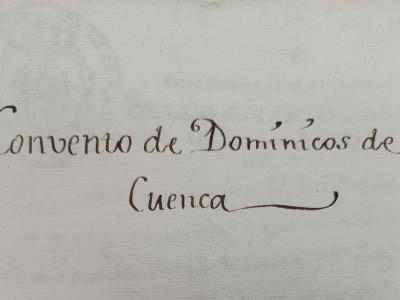 Convento de Domínícos de
Cuenca